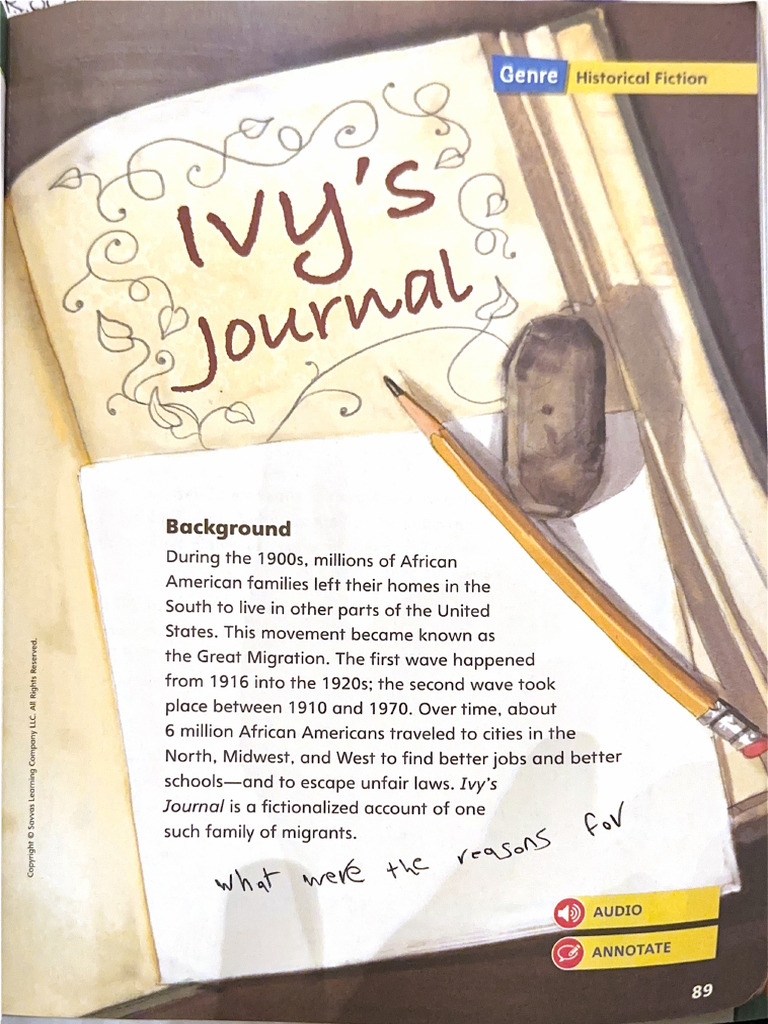 Genre Historical Fiction
Ivy's
Journal
Background
During the 1900s, millions of African
American families left their homes in the
South to live in other parts of the United
States. This movement became known as
the Great Migration. The first wave happened
from 1916 into the 1920s; the second wave took
place between 1910 and 1970. Over time, about
6 million African Americans traveled to cities in the
North, Midwest, and West to find better jobs and better
schools—and to escape unfair laws. Ivy's
Journal is a fictionalized account of one
such family of migrants.
what were the reasons for
AUDIO
ANNOTATE
89
Copyright © Savvas Learning Company LLC. All Rights Reserved.